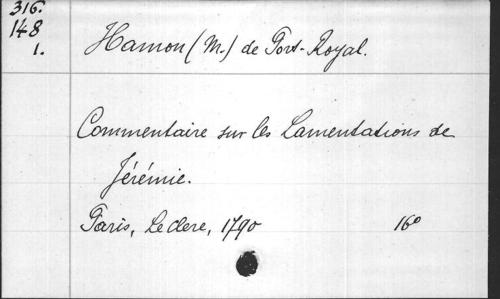 316.
148
1.
Hamon (M.) de Port-Royal.
Commentaire sur les Lamentations de
Jérémie.
Paris, Leclere, 1790 16°